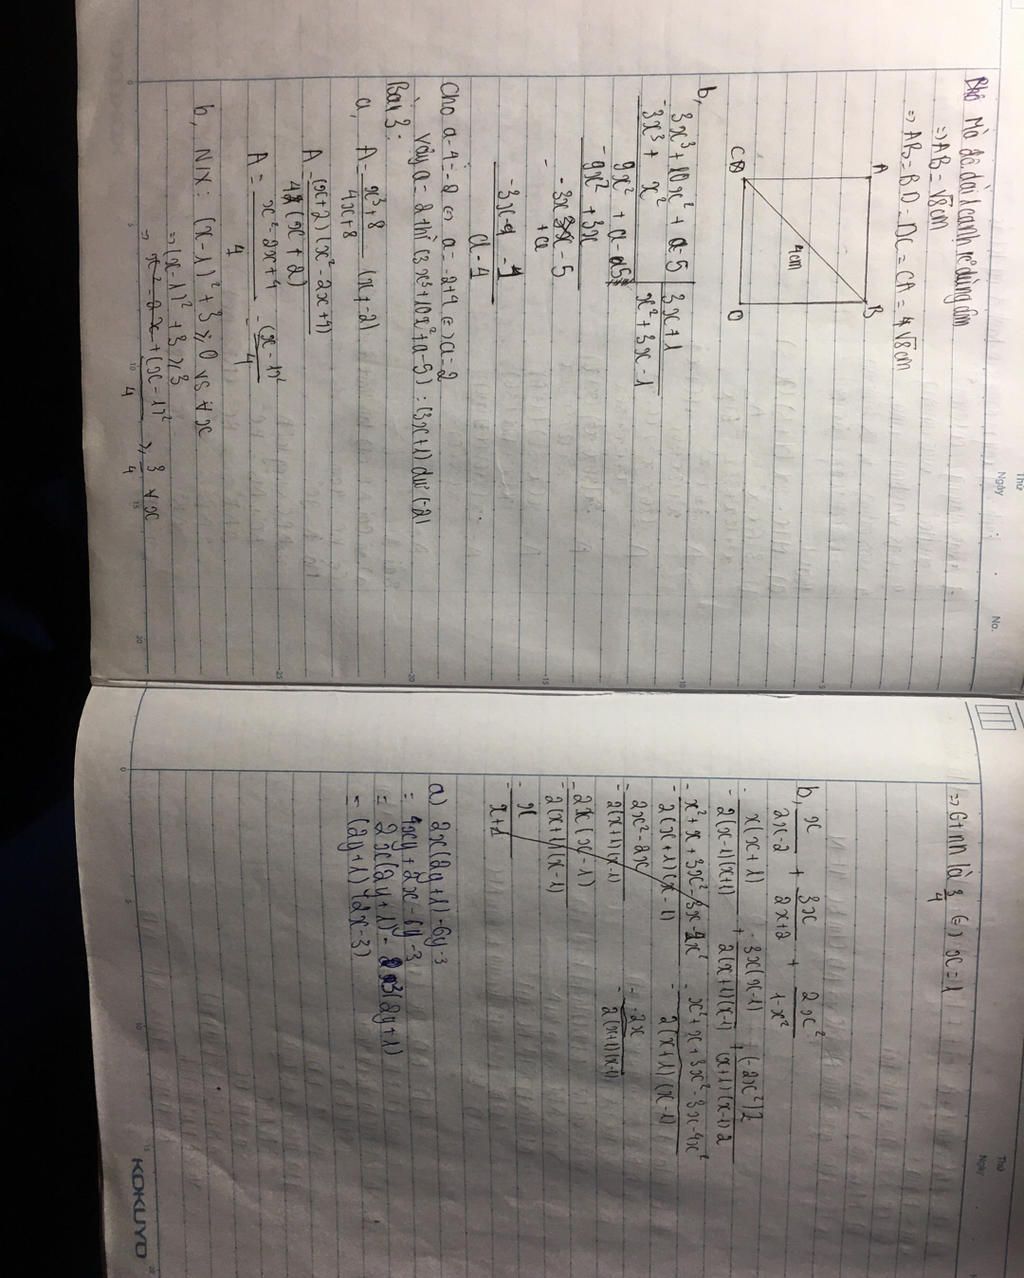 Thứ
Ngày
No.
Mà độ dài 1 cạnh k° dùng âm
=> AB = √8cm
=> AB = BD = DC = CA = √8cm
A
B
4cm
C
D
b,
3x³ + 10x² + a - 5
3x + 1
- 3x³ + x²
x² + 3x - 1
9x² + a - 5
- 9x² + 3x
- 3x - 5
+ a
- 3x - 1
a - 4
Cho a - 4 = - 2 <=> a = -2 + 4 <=> a = 2
Vậy a = 2 thì (3x³ + 10x² + a - 5) : (3x + 1) dư (-2)
Bài 3:
a, A = x³ + 8 / 4x + 8 (x ≠ -2)
A = (x + 2)(x² - 2x + 4) / 4(x + 2)
A = x² - 2x + 4 / 4
b, NX: (x - 1)² + 3 ≥ 0 vs ∀ x
=> (x - 1)² + 3 ≥ 3
=> (x - 1)² / 4 ≥ 3 / 4 ∀ x
Thứ
Ngày
=> GTNN là 3/4 <=> x = 1
b, x / 2x - 2 + 3x / 2x + 2 + 2x² / 1 - x²
= x(x + 1) / 2(x - 1)(x + 1) + 3x(x - 1) / 2(x + 1)(x - 1) + (-2x²)2 / (x + 1)(x - 1)2
= x² + x + 3x² - 3x - 2x² / 2(x + 1)(x - 1) = x² + x + 3x² - 3x - 4x² / 2(x + 1)(x - 1)
= 2x² - 2x / 2(x + 1)(x - 1) = - 2x / 2(x + 1)(x - 1)
= 2x(x - 1) / 2(x + 1)(x - 1)
= x / x + 1
a) 2x(2y + 1) - 6y - 3
= 4xy + 2x - 6y - 3
= 2x(2y + 1) - 3(2y + 1)
= (2y + 1)(2x - 3)
KOKUYO